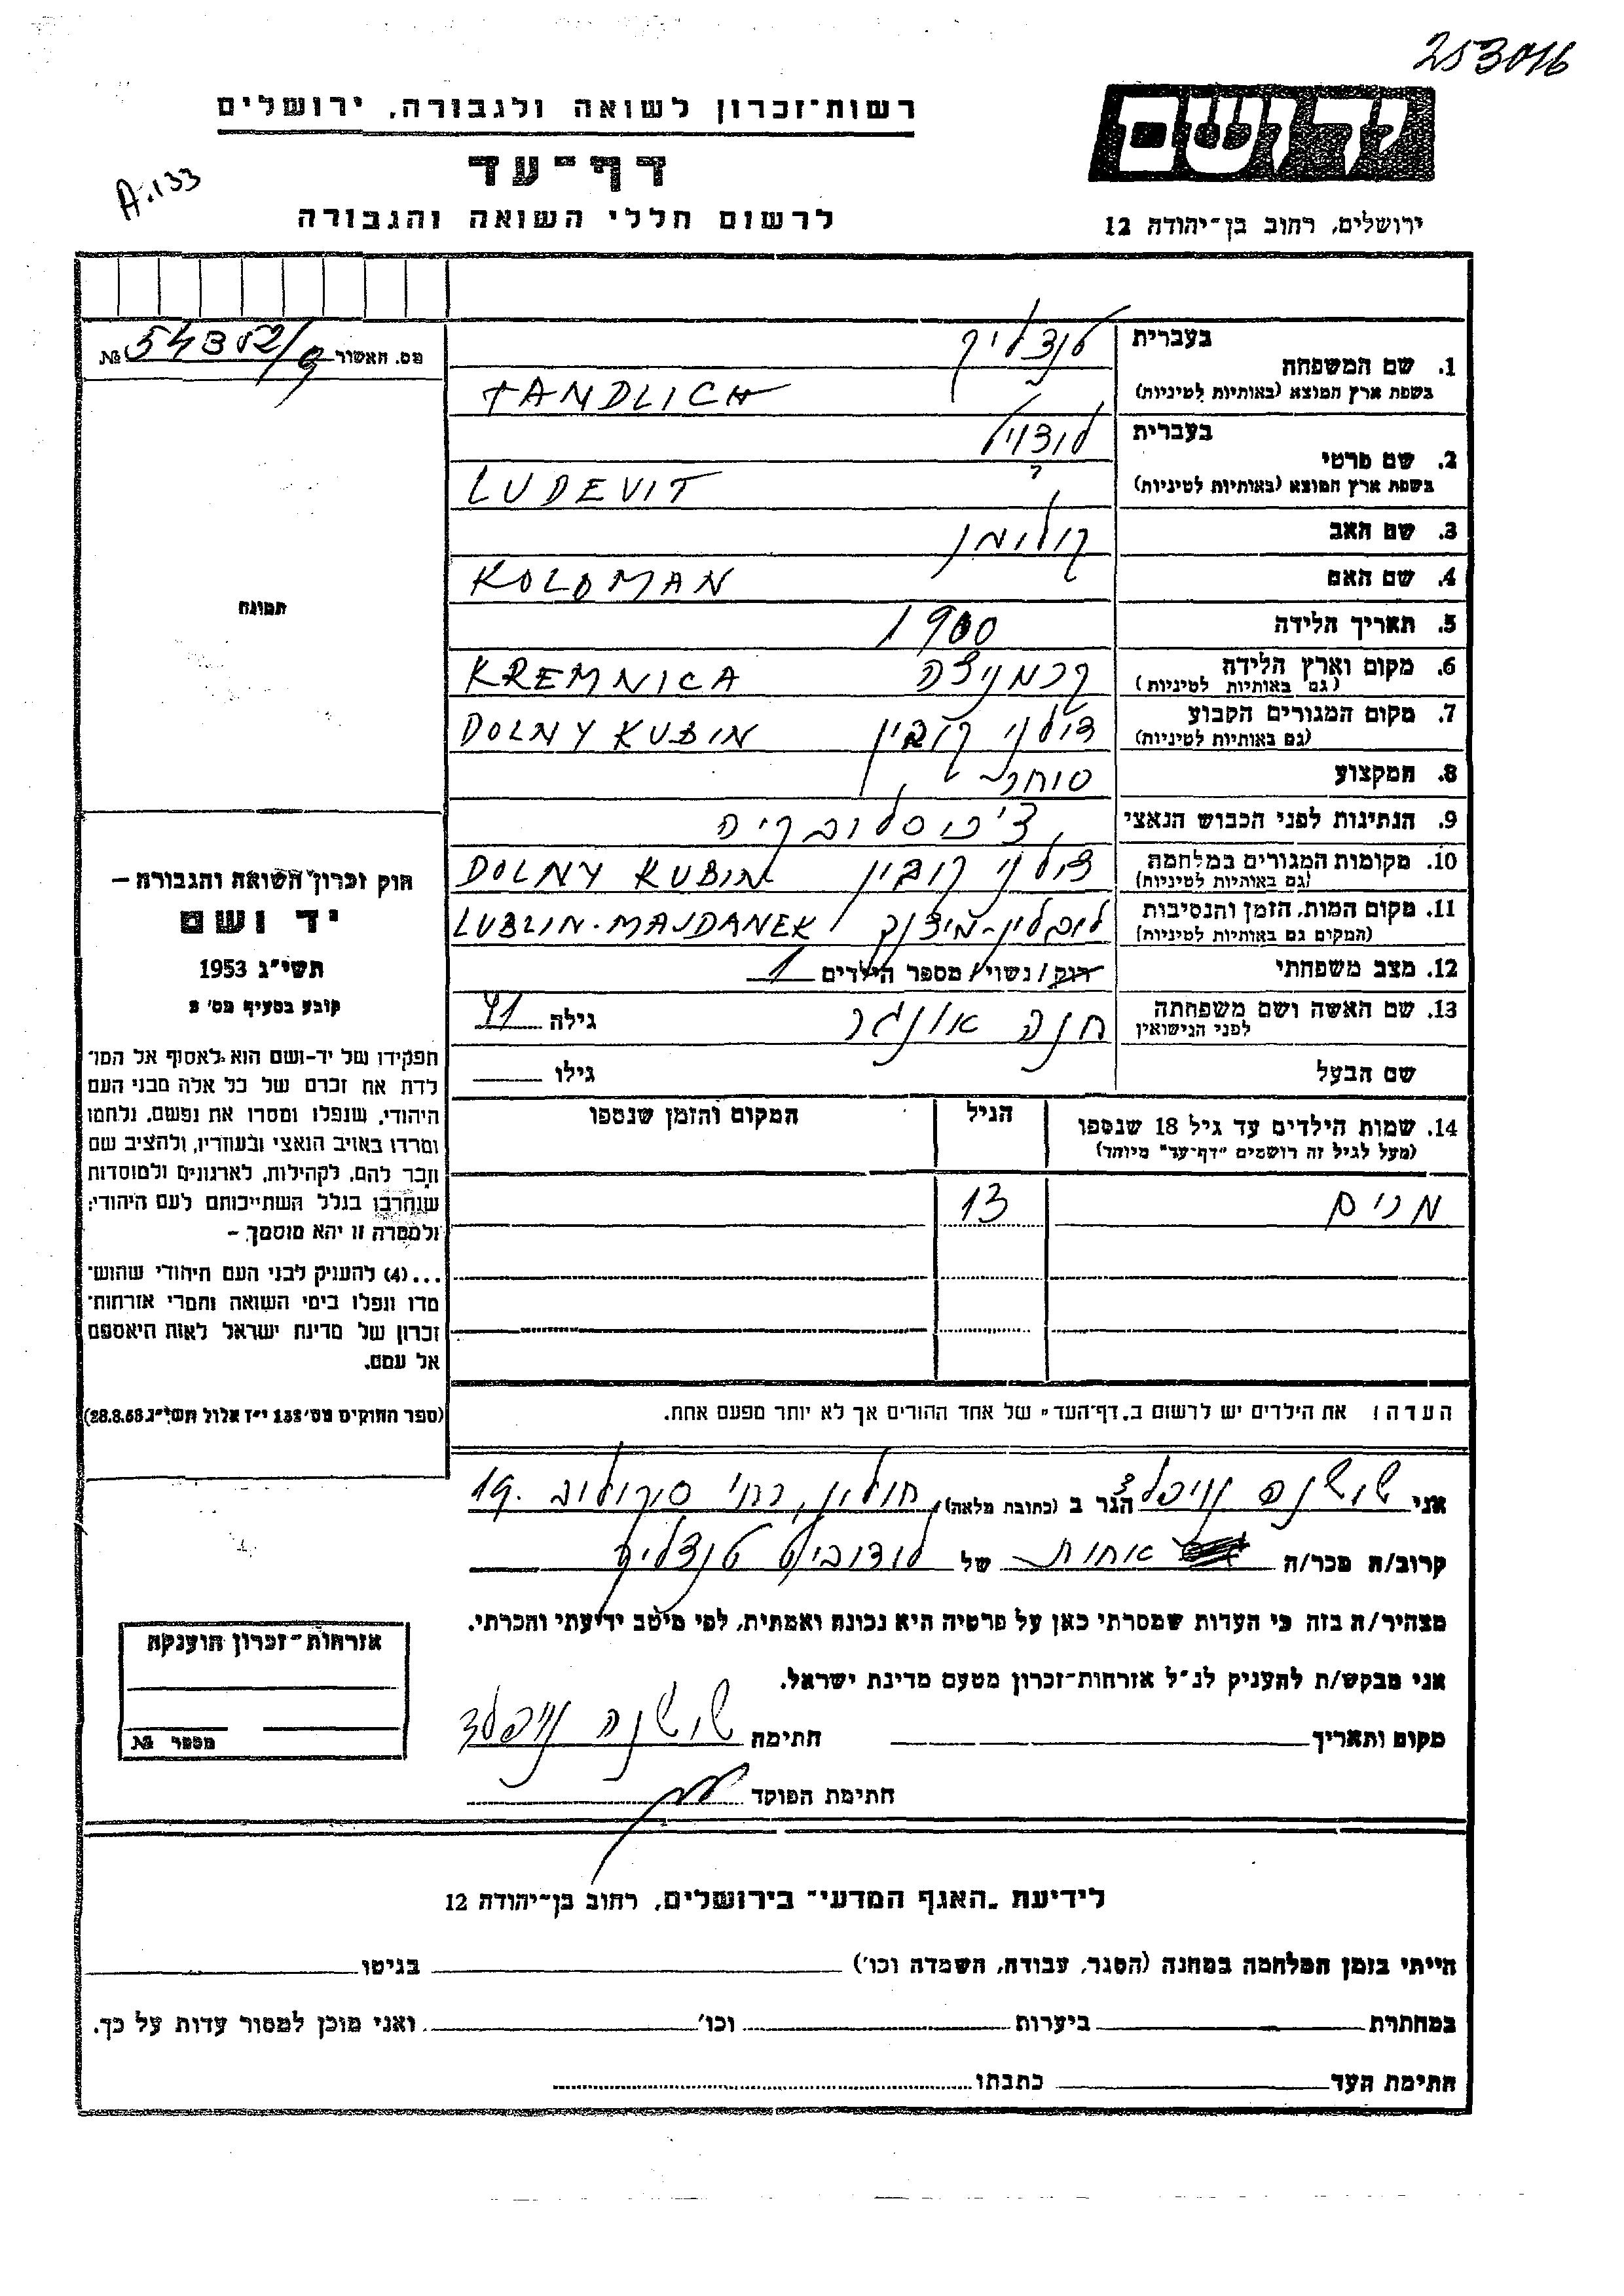 253016
ידושם
רשות־זכרון לשואה ולגבורה, ירושלים
דף־עד
A.133
לרשום חללי השואה והגבורה
ירושלים, רחוב בן־יהודה 12
מס. האשור 54352/9 №
בעברית
1. שם המשפחה
בשפת ארץ המוצא (באותיות לטיניות)
טנדליך
TANDLICH
בעברית
2. שם פרטי
בשפת ארץ המוצא (באותיות לטיניות)
LUDEVIT
3. שם האב קולומן
4. שם האם KOLOMAN
5. תאריך הלידה 1900
6. מקום וארץ הלידה קרמניצה KREMNICA
(גם באותיות לטיניות)
7. מקום המגורים הקבוע דולני קובין DOLNY KUBIN
(גם באותיות לטיניות)
8. המקצוע סוחר
9. הנתינות לפני הכבוש הנאצי צ'כוסלובקיה
10. מקומות המגורים במלחמה דולני קובין DOLNY KUBIN
(גם באותיות לטיניות)
11. מקום המות, הזמן והנסיבות לובלין-מידנק LUBLIN-MAJDANEK
(המקום גם באותיות לטיניות)
12. מצב משפחתי רוק/נשוי/מספר הילדים 1
13. שם האשה ושם משפחתה חנה אונגר גילה 41
לפני הנישואין
שם הבעל גילו
14. שמות הילדים עד גיל 18 שנספו הגיל המקום והזמן שנספו
(מעל לגיל זה רושמים "דף־עד" מיוחד)
13
הערה: את הילדים יש לרשום ב"דף־העד" של אחד ההורים אך לא יותר מפעם אחת.
תמונה
חוק זכרון השואה והגבורה –
יד ושם
תשי"ג 1953
קובע בסעיף מס' 2
תפקידו של יד-ושם הוא לאסוף אל המו־
לדת את זכרם של כל אלה מבני העם
היהודי, שנפלו ומסרו את נפשם, נלחמו
ומרדו באויב הנאצי ובעוזריו, ולהציב שם
וזכר להם, לקהילות, לארגונים ולמוסדות
שנחרבו בגלל השתייכותם לעם היהודי;
ולמטרה זו יהא מוסמך –
...(4) להעניק לבני העם היהודי שהוש־
מדו ונפלו בימי השואה והמרי אזרחות־
זכרון של מדינת ישראל לאות היאספם
אל עמם.
(ספר החוקים מס' 132 י"ז אלול תשי"ג 28.8.53)
אני שושנה הגר ב (כתובת מלאה) חולון, רח' סוקולוב 19.
קרוב/ה מכר/ה אחות של לודוביט טנדליך
מצהיר/ה בזה כי העדות שמסרתי כאן על פרטיה היא נכונה ואמתית, לפי מיטב ידיעתי והכרתי.
אני מבקש/ת להעניק לנ"ל אזרחות־זכרון מטעם מדינת ישראל.
מקום ותאריך חתימה שושנה
חתימת הפוקד
אזרחות־זכרון הוענקה
מספר №
לידיעת "האגף המדעי" בירושלים, רחוב בן־יהודה 12
הייתי בזמן המלחמה במחנה (הסגר, עבודה, השמדה וכו') בגיטו
במחתרת ביערות וכו' ואני מוכן למסור עדות על כך.
חתימת העד כתבתו